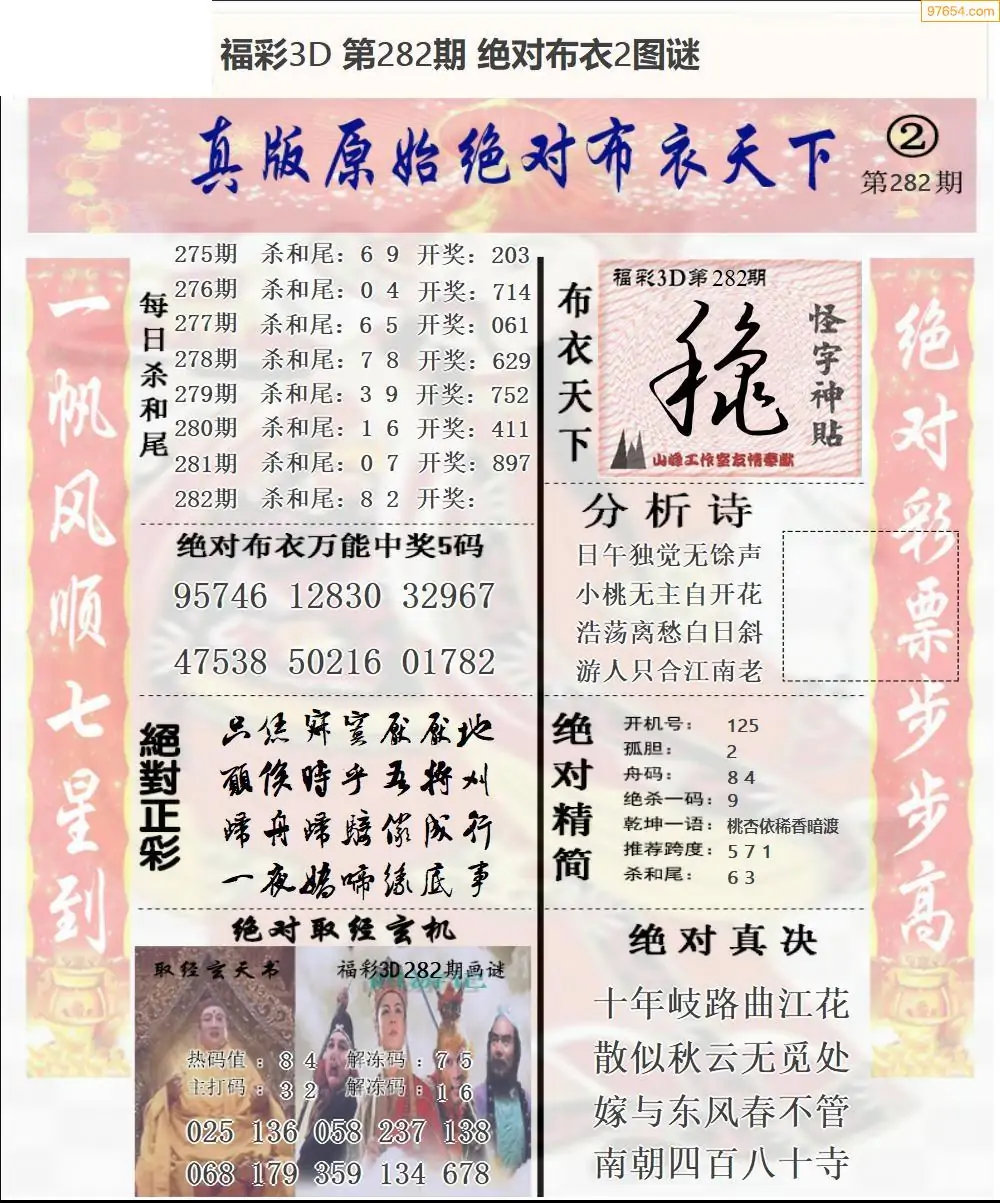 97654.com
福彩3D 第282期 绝对布衣2图谜
真版原始绝对布衣天下
②
第282期
一帆风顺七星到
每日杀和尾
275期 杀和尾：6 9 开奖：203
276期 杀和尾：0 4 开奖：714
277期 杀和尾：6 5 开奖：061
278期 杀和尾：7 8 开奖：629
279期 杀和尾：3 9 开奖：752
280期 杀和尾：1 6 开奖：411
281期 杀和尾：0 7 开奖：897
282期 杀和尾：8 2 开奖：
绝对布衣万能中奖5码
95746 12830 32967
47538 50216 01782
絕對正彩
一夜
绝对取经玄机
取经玄天书
福彩3D282期画谜
热码值：8 4 解冻码：7 5
主打码：3 2 解冻码：1 6
025 136 058 237 138
068 179 359 134 678
布衣天下
福彩3D第282期
怪字神貼
山峰工作室友情奉献
分析诗
日午独觉无馀声
小桃无主自开花
浩荡离愁白日斜
游人只合江南老
绝对精简
开机号：125
孤胆：2
舟码：8 4
绝杀一码：9
乾坤一语：桃杏依稀香暗渡
推荐跨度：5 7 1
杀和尾：6 3
绝对真决
十年岐路曲江花
散似秋云无觅处
嫁与东风春不管
南朝四百八十寺
绝对彩票步步高